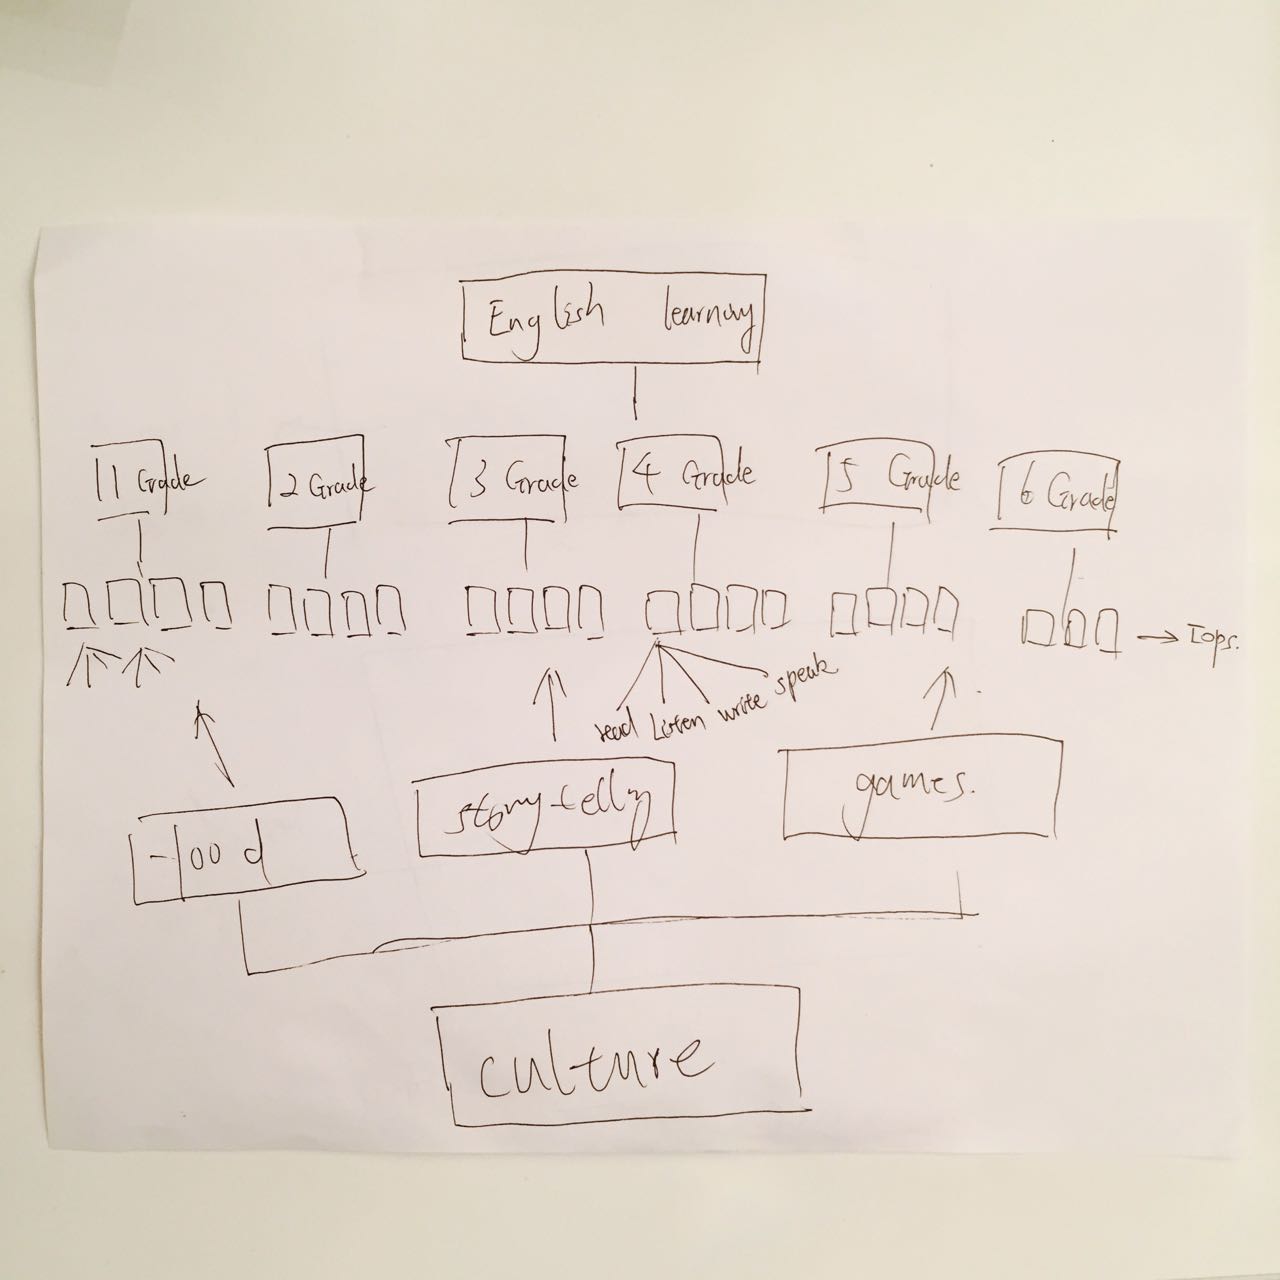 English learning
1 Grade
2 Grade
3 Grade
4 Grade
5 Grade
6 Grade
read Listen write speak
food
story-telling
games.
culture